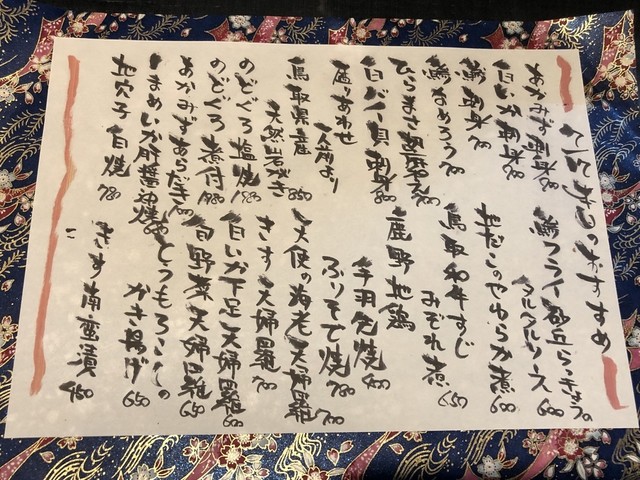 のおすすめ
あかみず刺身 700
白いか刺身 700
鯵刺身 700
鯵なめろう 700
ひらまさ胡麻 700
白バイ貝刺身 800
盛りあわせ
一人前より
鳥取県産
天然岩がき 850
のどぐろ塩焼 1980
のどぐろ煮付 1980
あかみずあらだき 700
しまめいか肝醤油焼
地穴子白焼 780
鯵フライ砂丘らっきょう
タルタルソース 600
地だこのやわらか煮 600
鳥取和牛すじ
みぞれ煮 650
鹿野地鶏
手羽先焼 600
ふりそで焼 780
天使の海老天婦羅 700
きす天婦羅 700
白いか下足天婦羅 600
旬野菜天婦羅 650
とうもろこしの
かき揚げ 650
きす南蛮漬 450